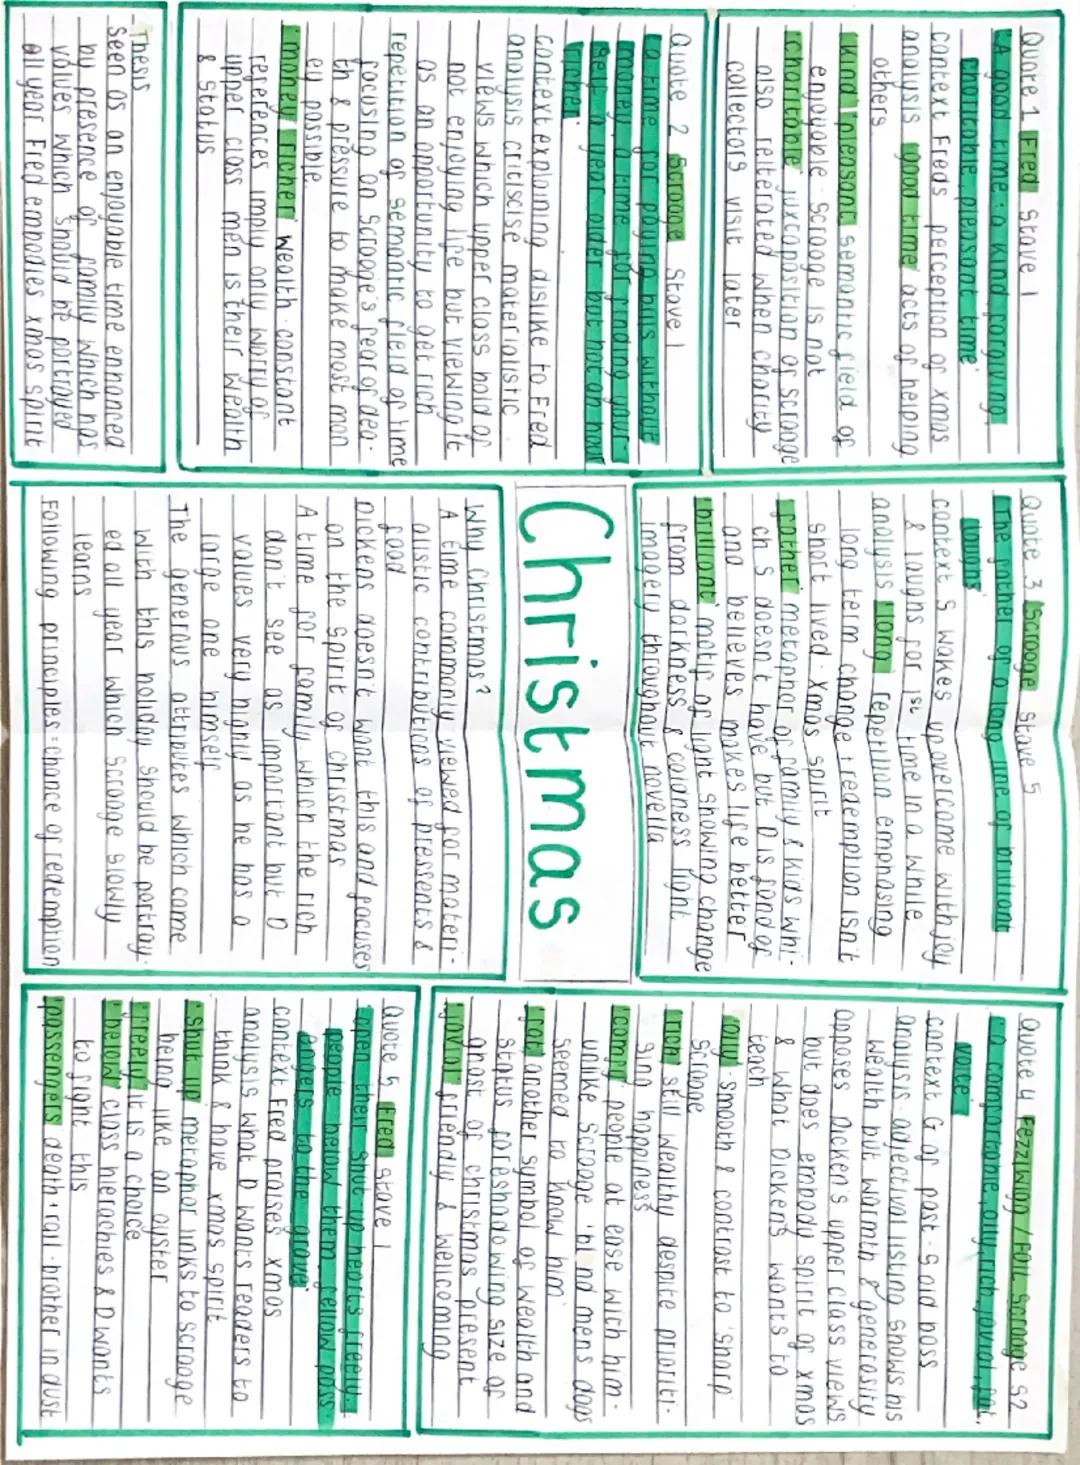 Quote 1 Fred Stave 1
"A good time: a kind, forgiving,
charitable, pleasant time"
context Freds perception of xmas
analysis "good time" acts of helping
others
"kind" "pleasant" semantic field of
enjoyable · Scrooge is not
"charitable" juxtaposition of scrooge
also reiterated when charity
collectors visit later
Quote 2 Scrooge Stave 1
"a time for paying bills without
money, a time for finding your-
self a year older but not an hour
richer"
context explaining dislike to Fred
analysis criticise materialistic
views which upper class hold of
not enjoying life but viewing it
as an opportunity to get rich
repetition of semantic field of time
focusing on Scrooge's fear of dea-
th & pessure to make most mon
ey possible
"money" "richer" wealth · constant
references imply only worry of
upper class men is their wealth
& status
Thesis
Seen as an enjoyable time enhanced
by presence of family which has
values which should be portrayed
all year. Fred embodies xmas spirit
Quote 3 Scrooge Stave 5
"The father of a long line of brilliant
laughs"
context S wakes up overcome with joy
& laughs for 1st time in a while
analysis "long" repetition emphasing
long term change + redemption isn't
short lived · xmas spirit
"father" metaphor of family & kids whi-
ch S doesn't have but D is fond of
and believes makes life better
"brilliant" motif of light showing change
from darkness & coldness light
imagery throughout novella
Christmas
Why Christmas?
A time commonly viewed for materi-
alistic contributions of pressents &
food
Dickens doesn't want this and focuses
on the spirit of christmas
A time for family which the rich
don't see as important but D
values very highly as he has a
large one himself
The generous attributes which come
with this holiday should be portray-
ed all year which Scrooge slowly
learns
Following principles = chance of redemption
Quote 4 Fezziwig / FOIL Scrooge S2
"a comfortable, oily, rich, jovial, fat,
voice"
context G of past · S old boss
analysis · adjectival listing shows his
wealth but warmth & generosity
opposes Dickens upper class views
but does embody spirit of xmas
& what Dickens wants to
teach
"oily" smooth & contrast to 'sharp'
Scrooge
"rich" still wealthy despite prioriti-
sing happiness
"comfy" people at ease with him-
unlike Scrooge 'blind mens dogs
seemed to know him'
"fat" another symbol of wealth and
status foreshadowing size of
ghost of christmas present
"jovial" friendly & wellcoming
Quote 5 Fred stave 1
"open their shut up hearts freely...
people below them... fellow pass-
engers to the grave"
context Fred praises xmas
analysis what D wants readers to
think & have xmas spirit
"shut up" metaphor links to scrooge
being like an oyster
"freely" it is a choice
"below" class hierachies & D wants
to fight this
"passengers" death + rail · brother in dust